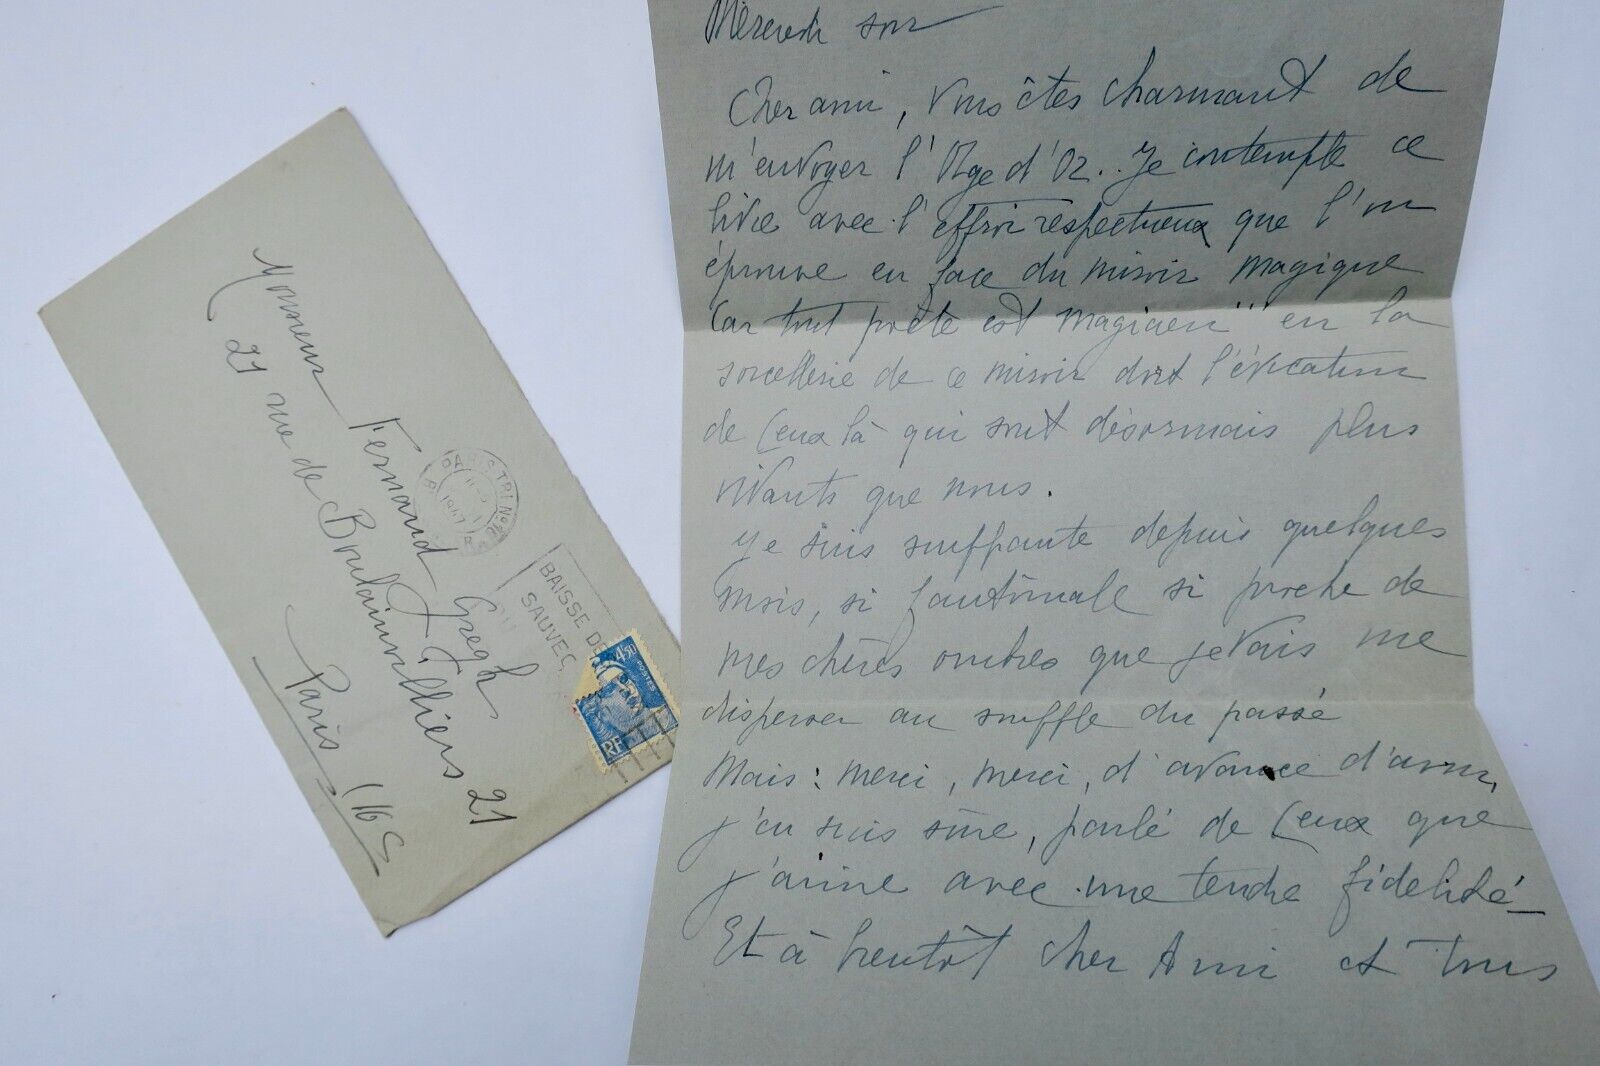 Mercredi soir
Cher ami, vous êtes charmant de
m'envoyer l'Age d'Or.. Je contemple ce
livre avec l'effroi respectueux que l'on
éprouve en face du miroir magique
Car tout poète est magicien... en la
sorcellerie de ce miroir dort l'évocation
de Ceux là qui sont désormais plus
vivants que nous.
Je suis souffrante depuis quelques
mois, si fantômale si proche de
mes chères ombres que je vais me
disperser au souffle du passé
Mais : merci, merci, d'avance d'avoir,
j'en suis sûre, parlé de Ceux que
j'aime avec une tendre fidélité_
Et à bientôt cher Ami et tous
Monsieur Fernand Gregh
21 rue de Boulainvilliers 21
Paris (16e
PARIS TRI Nº
1947
BAISSE DE
SAUVEG
4f50
POSTES
RF